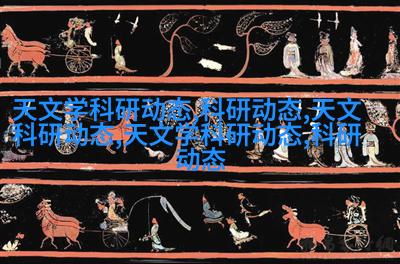 天文学科研动态,科研动态,天文
科研动态,天文学科研动态,科研
动态